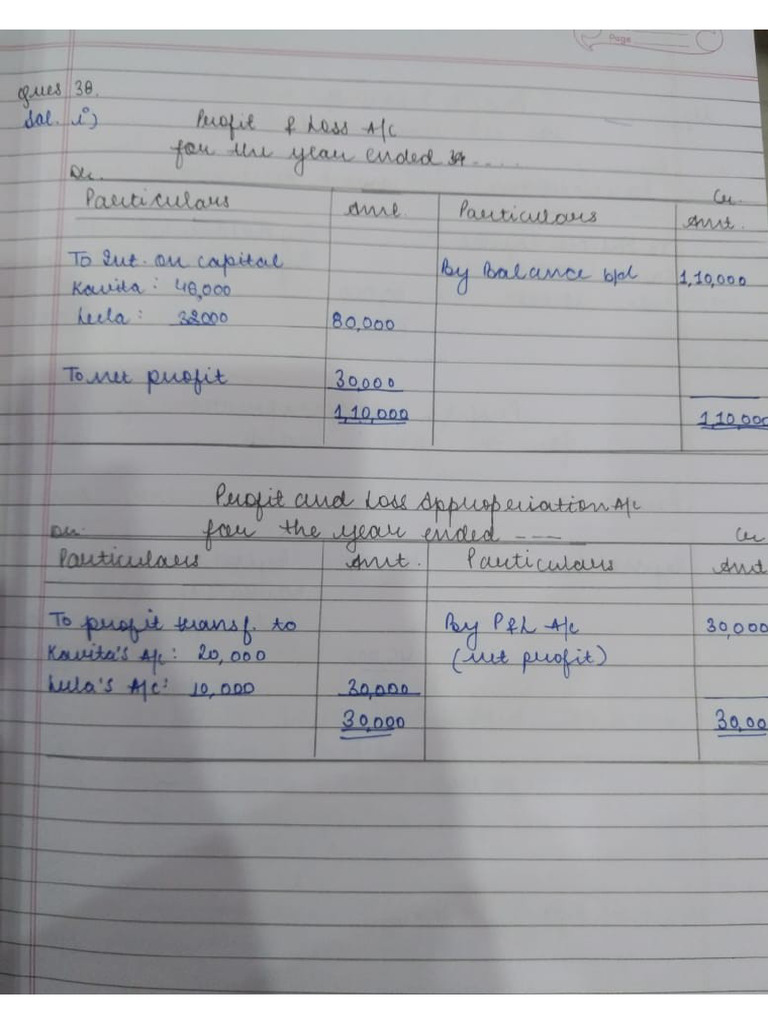 Page
Ques 38.
Sol. i)
Profit & Loss A/c
for the year ended .....
Dr. Cr.
Particulars Amt. Particulars Amt.
To Int. on capital By Balance b/d 1,10,000
Kavita: 48,000
Leela: 32000 80,000
To Net profit 30,000
1,10,000 1,10,000
Profit and Loss Appropriation A/c
for the year ended ----
Dr. Cr
Particulars Amt. Particulars Amt
To profit transf. to By P&L A/c 30,000
Kavita's A/c: 20,000 (Net profit)
Leela's A/c: 10,000 30,000
30,000 30,00